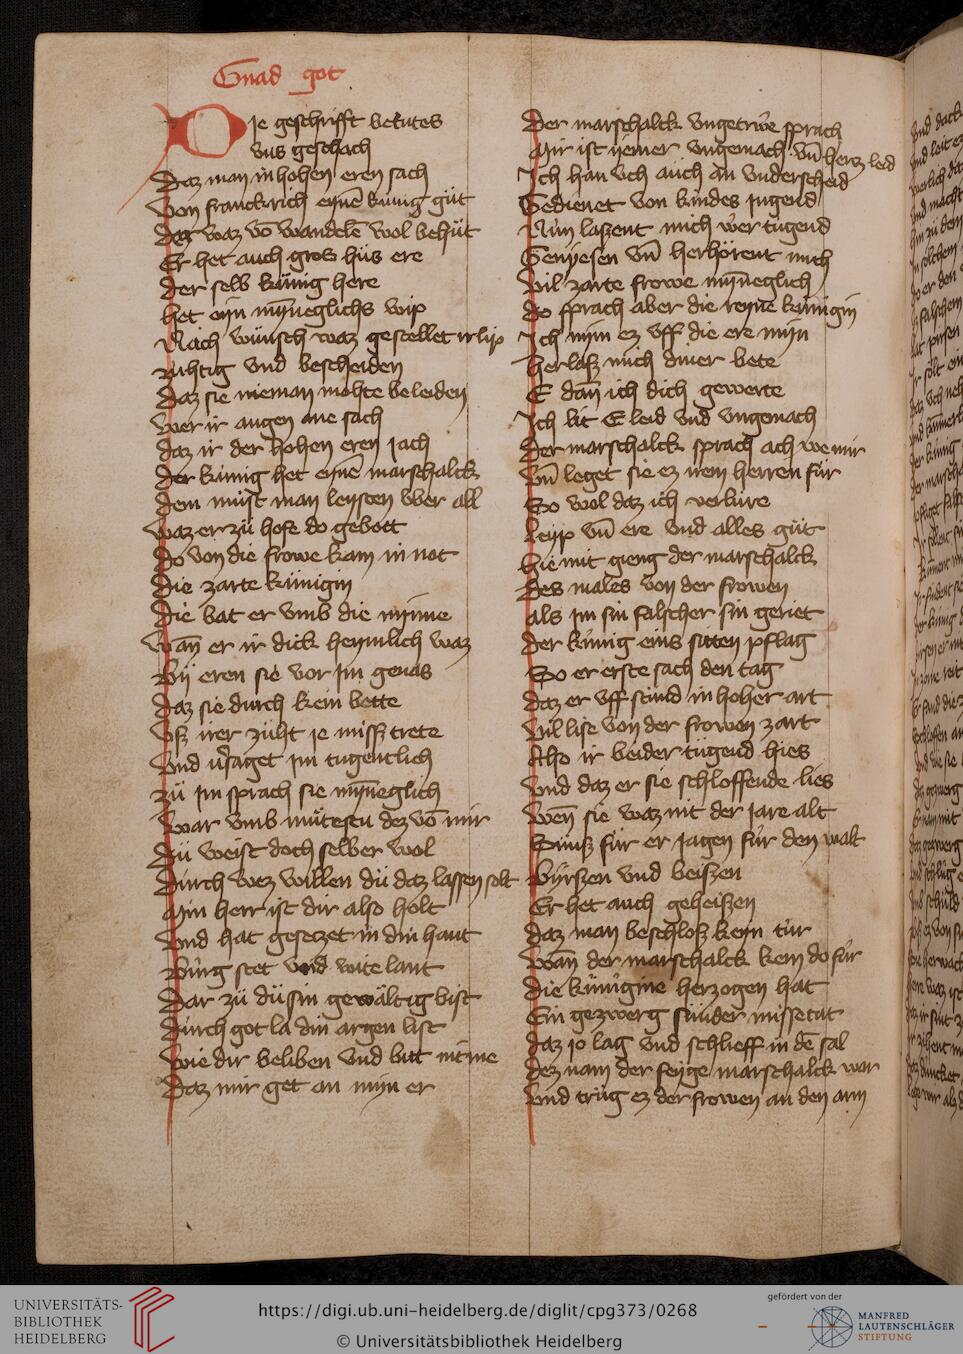 Gnad got
Die geschrifft betutes
vns geschach
Daz man in hohen eren sach
Von franckrich eynē kunig gůt
Der waz vō wandelē wol behůt
Er het auch gros hus ere
Der selb kůnig here
Het eyn mȳneglichs wip
Nach wunsch waz gestellet ir lip
zuhtig vnd bescheiden
Daz sie nieman mohte beleiden
Wer ir augen ane sach
Daz ir der hohen eren jach
Der kůnig het eynē marschalck
Dem můst man leysten vber all
Waz er zů hofe do gebott
Do von die frowe kam in not
Die zarte kůnigin
Die bat er vmb die mynne
Wan̄ er ir dick heymlich waz
By eren sie vor jm genas
Daz sie durch kein bette
Vsz irer zuht je missz trete
Vnd v̓saget jm tugentlich
zů jm sprach sie mȳneglich
War vmb můtestu dez vō mir
Dů weist doch selber wol
Durch wez willen dů daz lassen solt
Min herr ist dir also holt
Vnd hat gesetzet in din hant
Bůrg stet vnd wite lant
Dar zů dů sin gewåltig bist
Durch got la din argen list
Wie dir beliben vnd bitt nit me
Daz mir get an myn er
Der marschalck vngetrůe sprach
Mir ist yemer vngemach vn̄ hertz leid
Ich han vch auch an vnderscheid
Gedienet von kindes jugend
Nun laszent mich wer tugend
Genyesen vn̄ herhörent mich
Vil zarte frowe mȳneglich
Do sprach aber die reyne kůnigin
Ich nym ez vff die ere myn
Herlasz mich diner bete
E dan̄ ich dich gewerte
Ich lit E leid vnd vngemach
Der marschalck sprach ach we mir
Vn̄ leget sie ez irem herren fůr
So wol daz ich verlure
Leyp vn̄ ere vnd alles gůt
Hie mit gieng der marschalck
Des males von der frowen
Als jm sin falscher sin geriet
Der kůnig eins sitten pflag
So er erste sach den tag
Daz er vff stund in hoher art
Vil lise von der frowen zart
Also ir beider tugend hies
Vnd daz er sie schloffende lies
Wen̄ sie waz nit der jare alt
Sunsz fůr er jagen fůr den walt
Byrszen vnd beiszen
Er het auch geheiszen
Daz man beschlosz kein tůr
Wan̄ der marschalck kem do fůr
Die kůnigine herzogen hat
Ein gezwerg sunder missetat
Daz jo lag vnd schlieff in dē sal
Dez nam der feyge marschalck war
Vnd trůg ez der frowen an den arm
UNIVERSITÄTS-
BIBLIOTHEK
HEIDELBERG
https://digi.ub.uni-heidelberg.de/diglit/cpg373/0268
© Universitätsbibliothek Heidelberg
gefördert von der
MANFRED
LAUTENSCHLÄGER
STIFTUNG